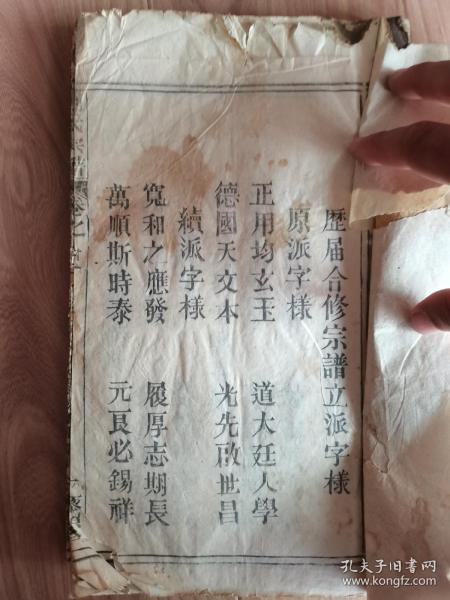 歷屆合修宗譜立派字樣
原派字樣
正用均玄玉　道大廷人學
德國天文本　光先啟世昌
續派字樣
寬和之應發　履厚志期長
萬順斯時泰　元良必錫祥
氏宗譜　卷之
孔夫子旧书网
www.kongfz.com